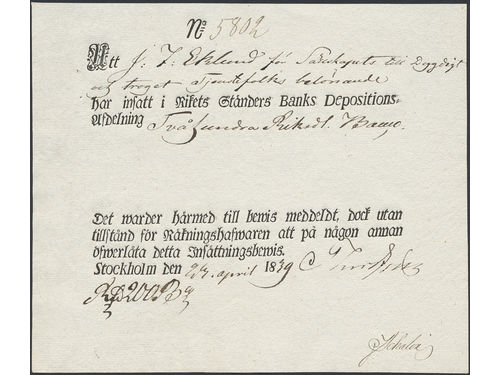 No 5802
Att J. F. Eklund för Sällskapets till Dygdigt
och troget Tjenstefolks belönande
har insatt i Rikets Ständers Banks Depositions-
Afdelning Tvåhundra Riksd. Banco.
Det warder härmed till bewis meddeldt, dock utan
tillstånd för Räkningshafwaren att på någon annan
öfwerlåta detta Insättningsbewis.
Stockholm den 24 april 1839
R 200 B